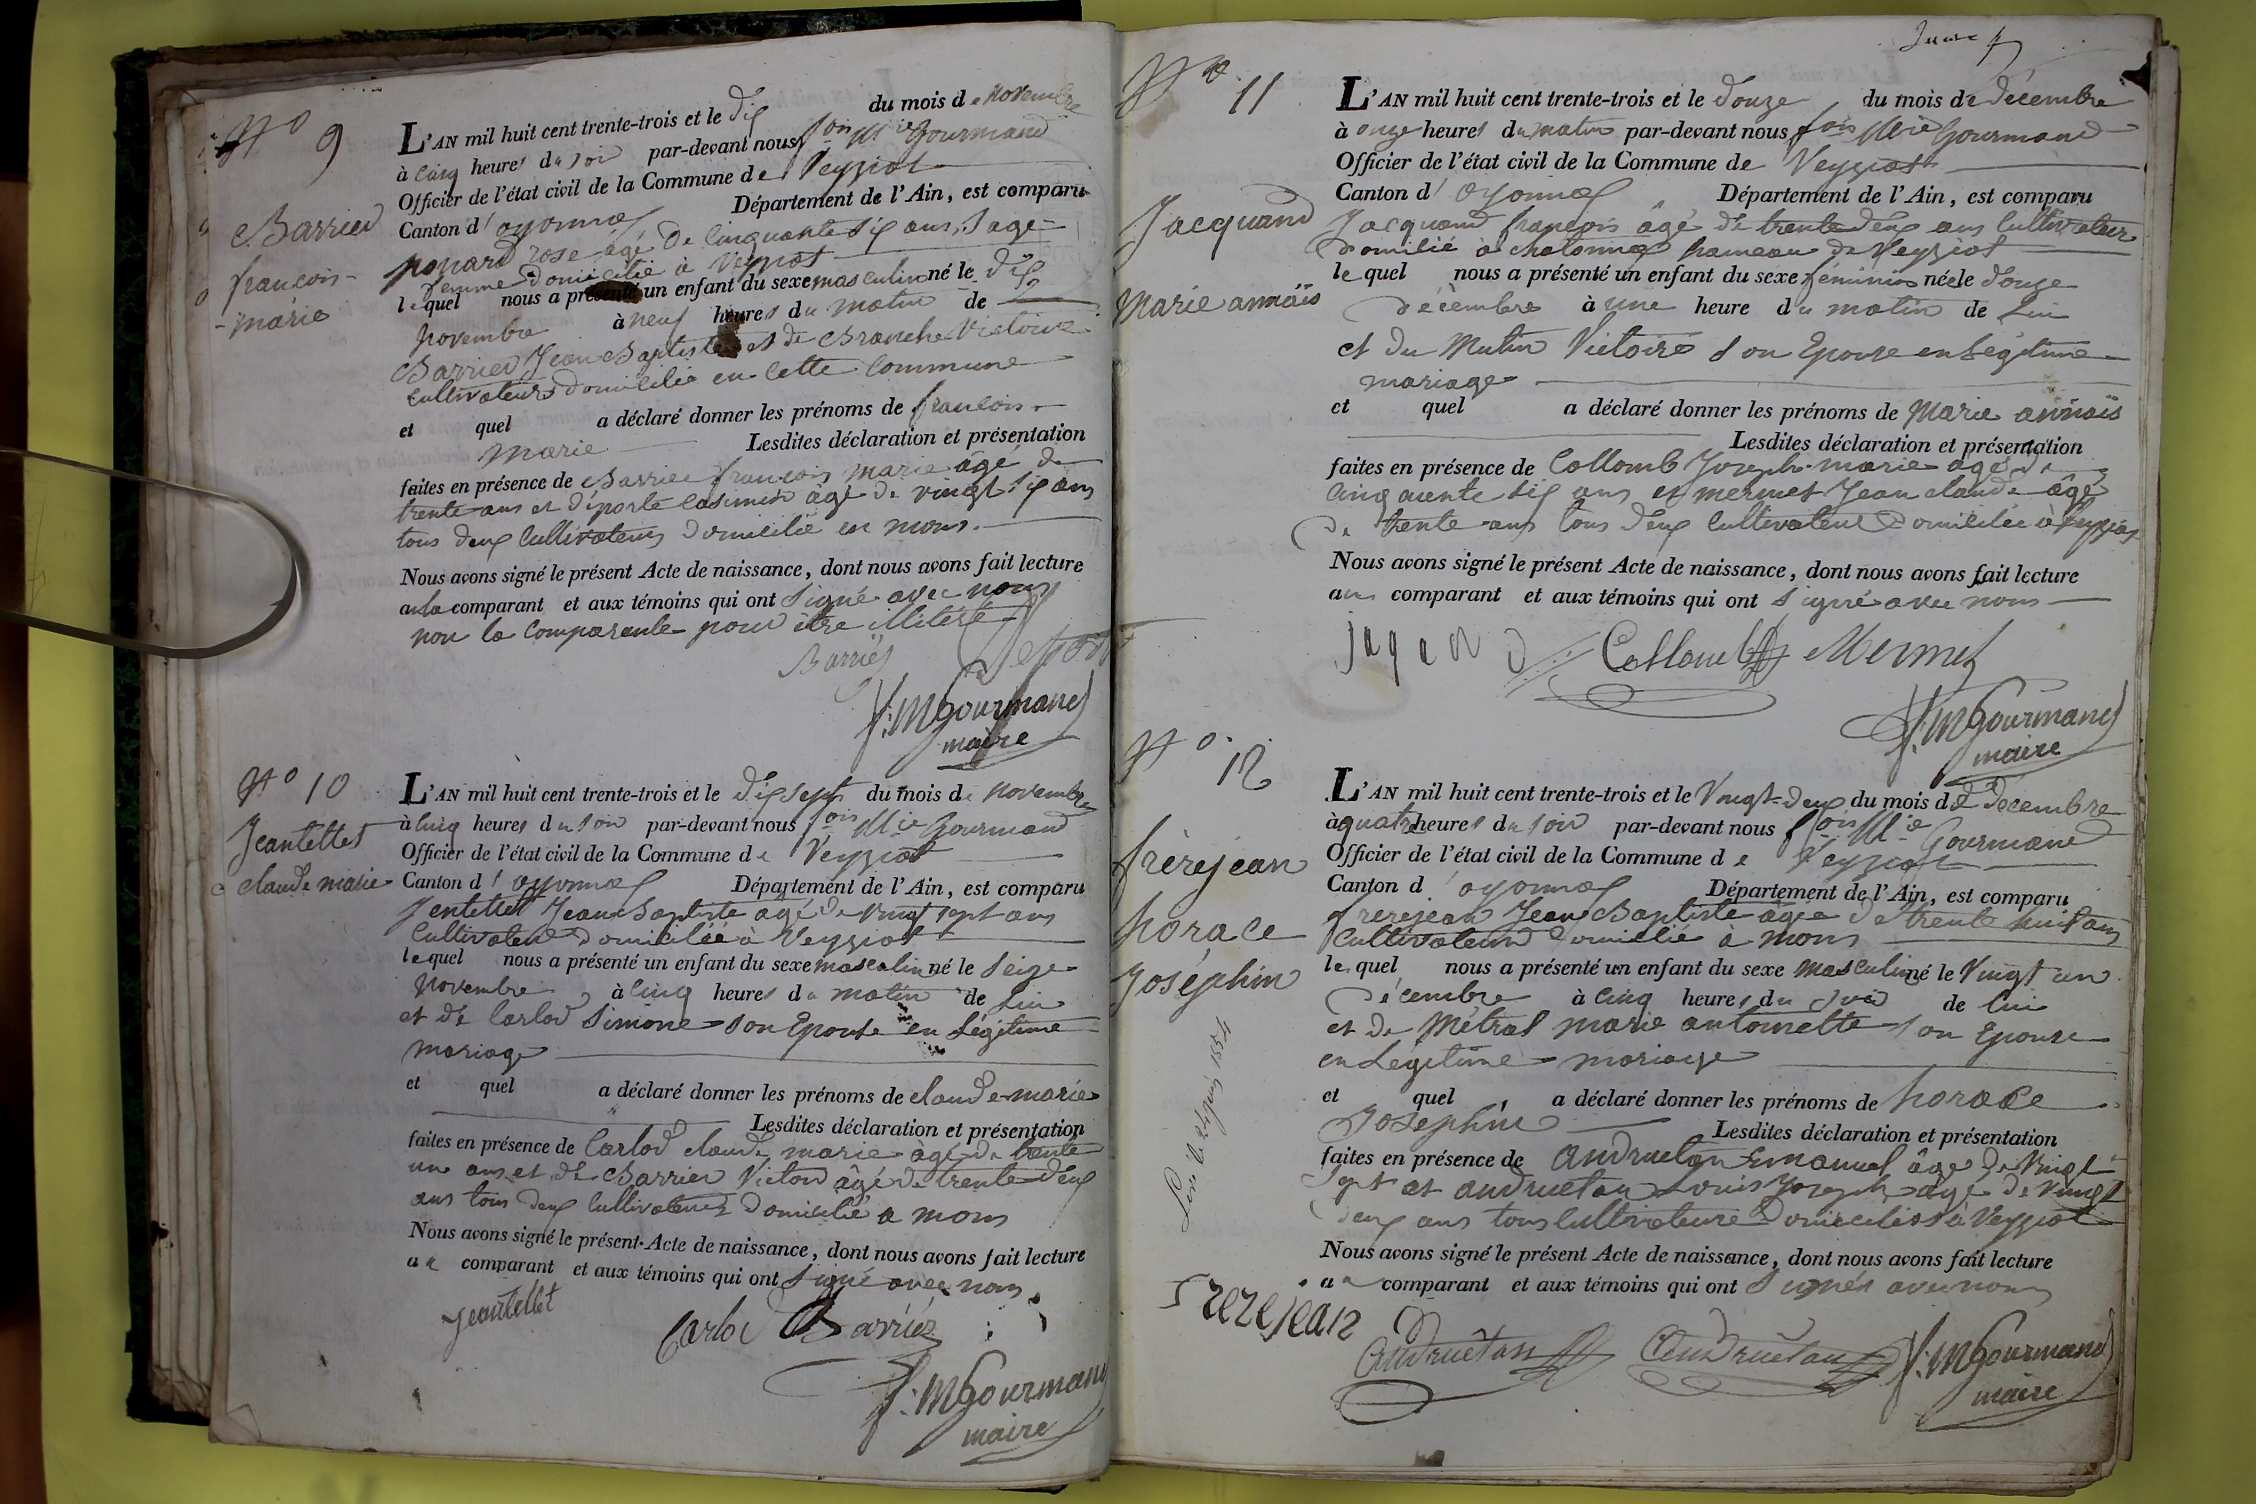 N° 9
Barrier
françois-
-marie
L'AN mil huit cent trente-trois et le dix du mois de novembre
à cinq heures du soir par-devant nous fois Mie Gourmand
Officier de l'état civil de la Commune de Veyziat
Canton d'oyonnax Département de l'Ain, est comparu
ponard rose âgé de cinquante six ans, sage-
femme domicilié à Veyziat
lequel nous a présenté un enfant du sexe masculin né le dix
novembre à neuf heures du matin de
Barrier Jean Baptiste et de Branche Victoire
cultivateurs domicilié en cette commune
et quel a déclaré donner les prénoms de françois-
marie Lesdites déclaration et présentation
faites en présence de Barrier françois marie âgé de
trente ans et déporte casimir âgé de vingt six ans
tous deux cultivateurs domicilié en mons.
Nous avons signé le présent Acte de naissance, dont nous avons fait lecture
au la comparant et aux témoins qui ont signé avec nous
non la comparante pour être illitéré
Barriér
f. M Gourmand
maire
N° 10
Jeantettet
claude marie
L'AN mil huit cent trente-trois et le dix sept du mois de novembre
à cinq heures du soir par-devant nous fois Mie Gourmand
Officier de l'état civil de la Commune de Veyziat
Canton d'oyonnax Département de l'Ain, est comparu
Jentettet Jean Baptiste âgé de vingt sept ans
cultivateur domiciliée à Veyziat
lequel nous a présenté un enfant du sexe masculin né le seize
novembre à cinq heures du matin de lui
et de Carlod Simone son Epouse en Légitime
mariage
et quel a déclaré donner les prénoms de claude marie
Lesdites déclaration et présentation
faites en présence de Carlod claude marie âgé de trente
un ans et de Barrier Victor âgé de trente deux
ans tous deux cultivateurs domicilié a mons
Nous avons signé le présent Acte de naissance, dont nous avons fait lecture
au comparant et aux témoins qui ont signé avec nous
Jeantettet
Carlod Barriér
f. M Gourmand
maire
N° 11
Jacquand
Marie annaïs
L'AN mil huit cent trente-trois et le douze du mois de décembre
à onze heures du matin par-devant nous fois Mie Gourmand
Officier de l'état civil de la Commune de Veyziat
Canton d'oyonnax Département de l'Ain, est comparu
Jacquand françois âgé de trente deux ans cultivateur
domicilié à chatonnax hameau de Veyziat
lequel nous a présenté un enfant du sexe féminin née le douze
décembre à une heure du matin de lui
et du Mutin Victoire son Epouse en Légitime
mariage
et quel a déclaré donner les prénoms de Marie annaïs
Lesdites déclaration et présentation
faites en présence de Collomb Joseph-marie âgé de
cinquante six ans et mermet Jean claude âgé
de trente ans tous deux cultivateur domiciliée à Veyziat
Nous avons signé le présent Acte de naissance, dont nous avons fait lecture
au comparant et aux témoins qui ont signé avec nous
Collomb Mermet
f. M Gourmand
maire
N° 12
frèrejean
horace
Joséphin
L'AN mil huit cent trente-trois et le Vingt-deux du mois de décembre
à quatre heures du soir par-devant nous fois Mie Gourmand
Officier de l'état civil de la Commune de Veyziat
Canton d'oyonnax Département de l'Ain, est comparu
frerejean Jean Baptiste âgée de trente huit ans
cultivateur domicilié à mons
lequel nous a présenté un enfant du sexe masculin né le Vingt un
décembre à cinq heures du soir de lui
et de Métral marie antoinette son Epouse
en Légitime mariage
et quel a déclaré donner les prénoms de horace
Josephin Lesdites déclaration et présentation
faites en présence de andruetan Emanuel âgé de vingt
sept et andruetan Louis Joseph âgé de vingt
deux ans tous cultivateurs domiciliés à Veyziat
Nous avons signé le présent Acte de naissance, dont nous avons fait lecture
au comparant et aux témoins qui ont signés avec nous
frerejean
andruetan andruetan f. M Gourmand
maire